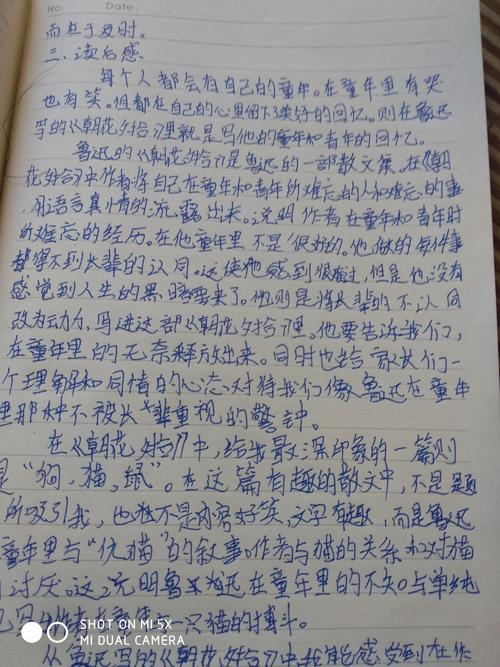 No:    Date:
而在于及时。
三、读后感
每个人都会有自己的童年。在童年里有哭
也有笑。但都在自己的心里留下了美好的回忆。则在鲁迅
写的《朝花夕拾》里就是写他的童年和青年的回忆。
鲁迅的《朝花夕拾》是鲁迅的一部散文集。在《朝
花夕拾》中作者将自己在童年和青年所难忘的人和难忘的事
用语言真情的流露出来。说明作者在童年和青年时
所难忘的经历。在他童年里不是很好的。他做的每件事
都得不到长辈的认同。这使他感到很难过,但是他没有
感觉到人生的黑暗要来了。他则是将长辈的不认同
改为动力,写进这部《朝花夕拾》里。他要告诉我们,
在童年里的无奈释放出来。同时也给家长们一
个理解和同情的心态对待我们像鲁迅在童年
里那种不被长辈重视的警钟。
在《朝花夕拾》中,给我最深印象的一篇则
是“狗,猫,鼠”。在这篇有趣的散文中,不是题
所吸引我,也独不是内容好笑,文字有趣,而是鲁迅
童年里与“仇猫”的叙事。作者与猫的关系和对猫
讨厌。这说明鲁迅在童年里的不知与单纯
一只猫的搏斗。
从鲁迅写的《朝花夕拾》中我能感受到在作
SHOT ON MI 5X
MI DUAL CAMERA